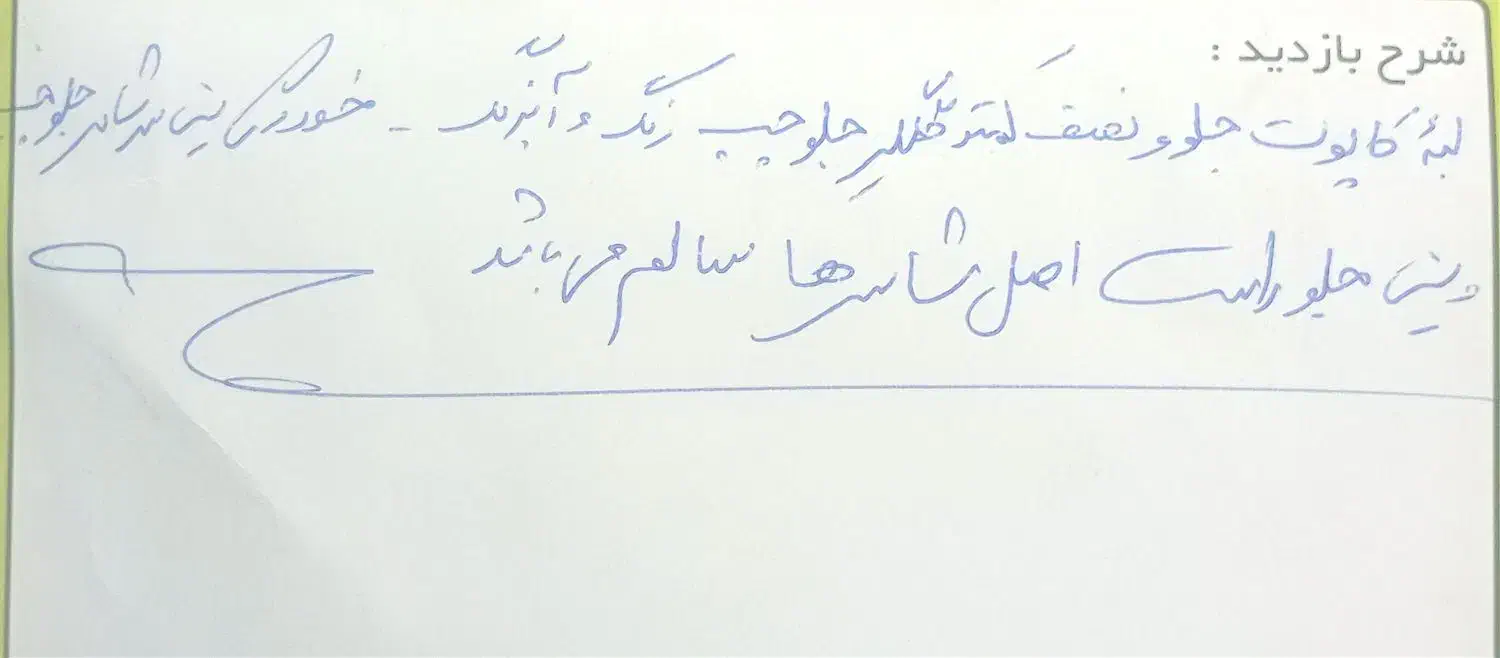 شرح بازدید :
لبهٔ کاپوت جلو و نصف کمتر گلگیر جلو چپ رنگ و آبرنگ - خوردگی سینی سر شاسی جلو چپ
و سینی جلو راست اصل شاسی ها سالم می باشد